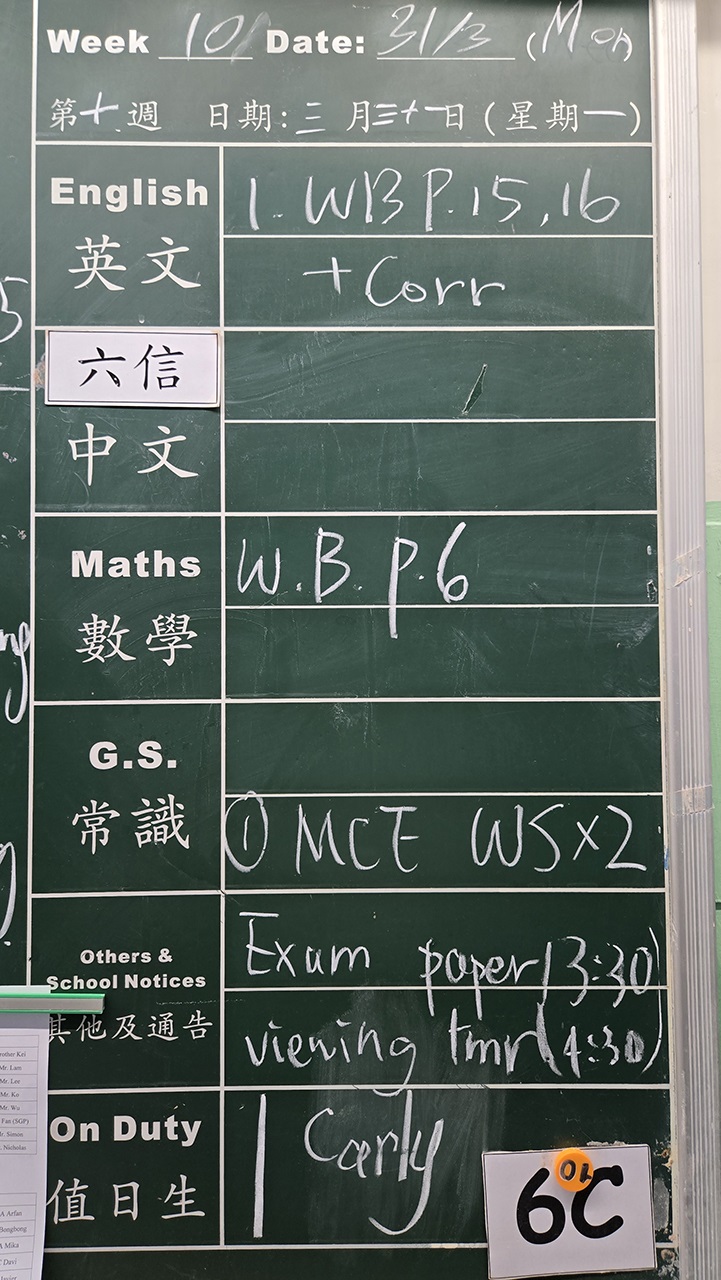 Week 10 Date: 31/3 (Mon)
第十週 日期:三月三十一日(星期一)
English 1. WB P.15,16
英文 + Corr
六信
中文
Maths W.B. P.6
數學
G.S.
常識 ① MCE WS×2
Others & Exam paper (3:30)
School Notices
其他及通告 viewing tmr (4:30)
On Duty 1 Carly
值日生
6C
rother Kei
Mr. Lam
Mr. Lee
Mr. Ko
Mr. Wu
Fan (SGP)
Ir. Simon
. Nicholas
A Arfan
Bongbong
A Mika
Davi
Javier